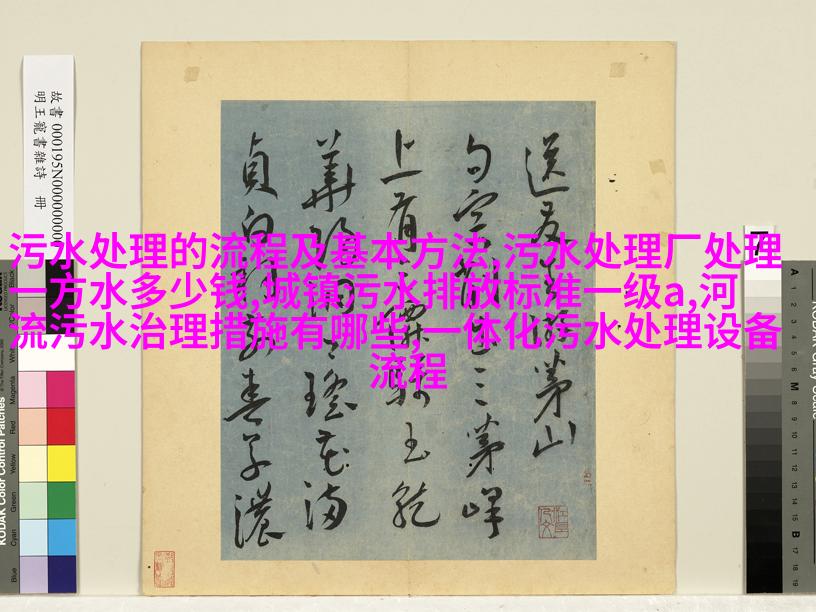 污水处理的流程及基本方法,污水处理厂处理
一方水多少钱,城镇污水排放标准一级a,河
流污水治理措施有哪些,一体化污水处理设备
流程
故書 000195N000000000
明王寵書雜詩 冊
送友游茅山
句三茅峰
上有玉
華陽洞瑤花滿
貞白祠前春草濃
KODAK Color Control Patches
Blue
Cyan
Green
Yellow
Red
Magenta
White
Black
A
1
2
3
4
5
6
M
8
9
10
11
12
13
14
15
B
17
18
19